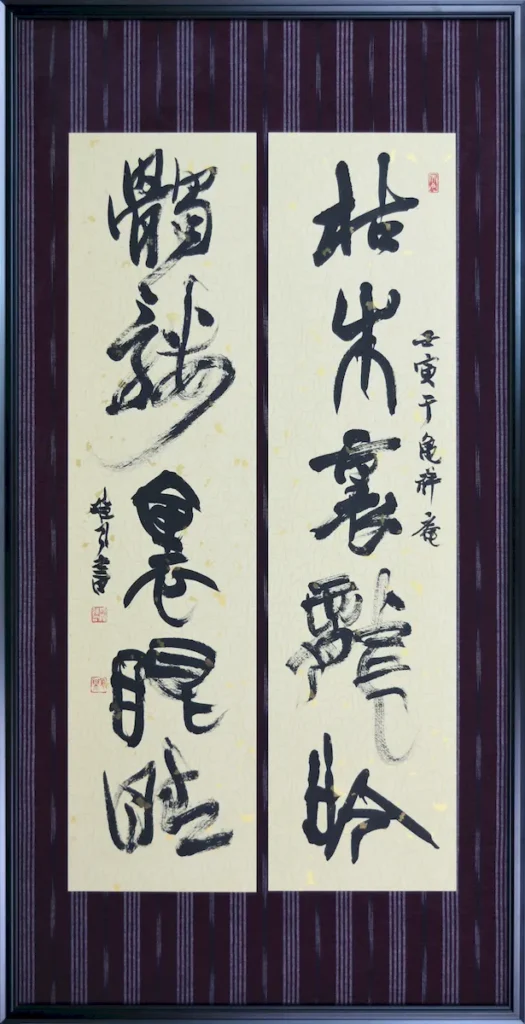 枯木裏龍吟
壬寅于亀祥庵
髑髏裏眼睛
書